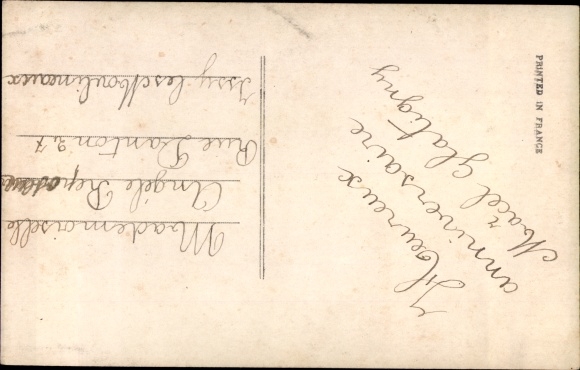 PRINTED IN FRANCE
Heureux
anniversaire
Macel Glatigny
Mademoiselle
Angéle
Rue Danton 27
Issy les Moulineaux